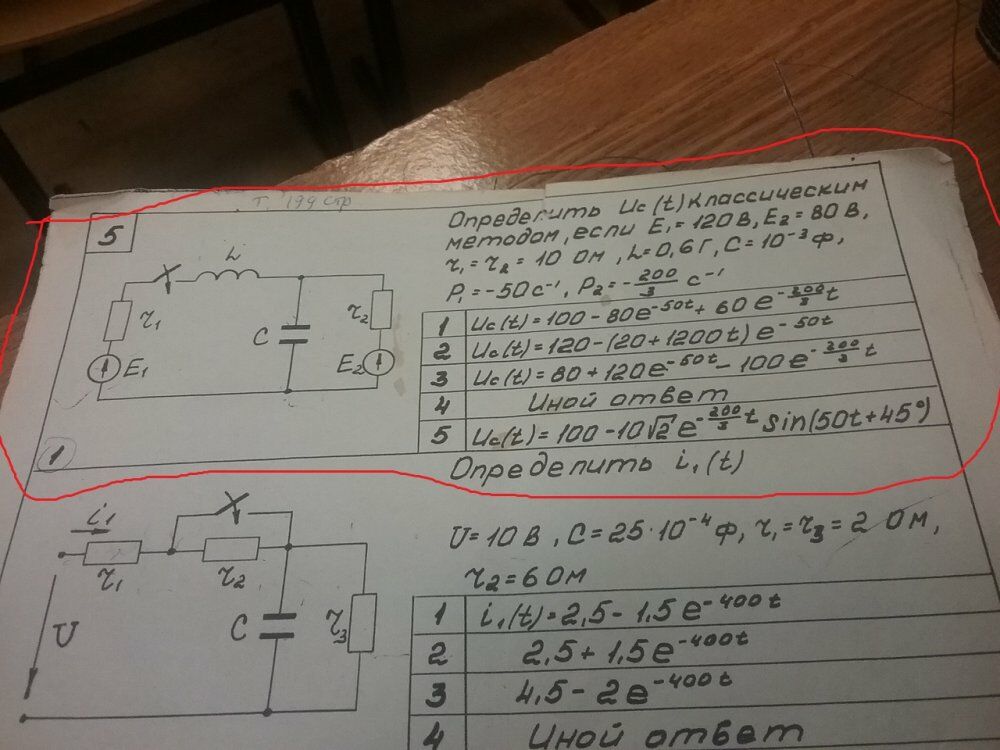 Т. 199 стр
5
Определить Uc(t) классическим
методом, если E₁=120 В, E₂=80 В,
r₁=r₂=10 Ом, L=0,6 Г, C=10⁻³ Ф,
P₁=-50 с⁻¹, P₂=-200/3 с⁻¹
L
r₁
C
r₂
E₁
E₂
1 Uc(t)=100-80e^-50t+60e^-200/3 t
2 Uc(t)=120-(20+1200t)e^-50t
3 Uc(t)=80+120e^-50t-100e^-200/3 t
4 Иной ответ
5 Uc(t)=100-10√2e^-200/3 t sin(50t+45°)
1
Определить i₁(t)
i1
r₁
r₂
U
C
r₃
U=10 В, C=25·10⁻⁴ Ф, r₁=r₃=2 Ом,
r₂=6 Ом
1 i₁(t)=2,5-1,5e^-400t
2 2,5+1,5e^-400t
3 4,5-2e^-400t
4 Иной ответ